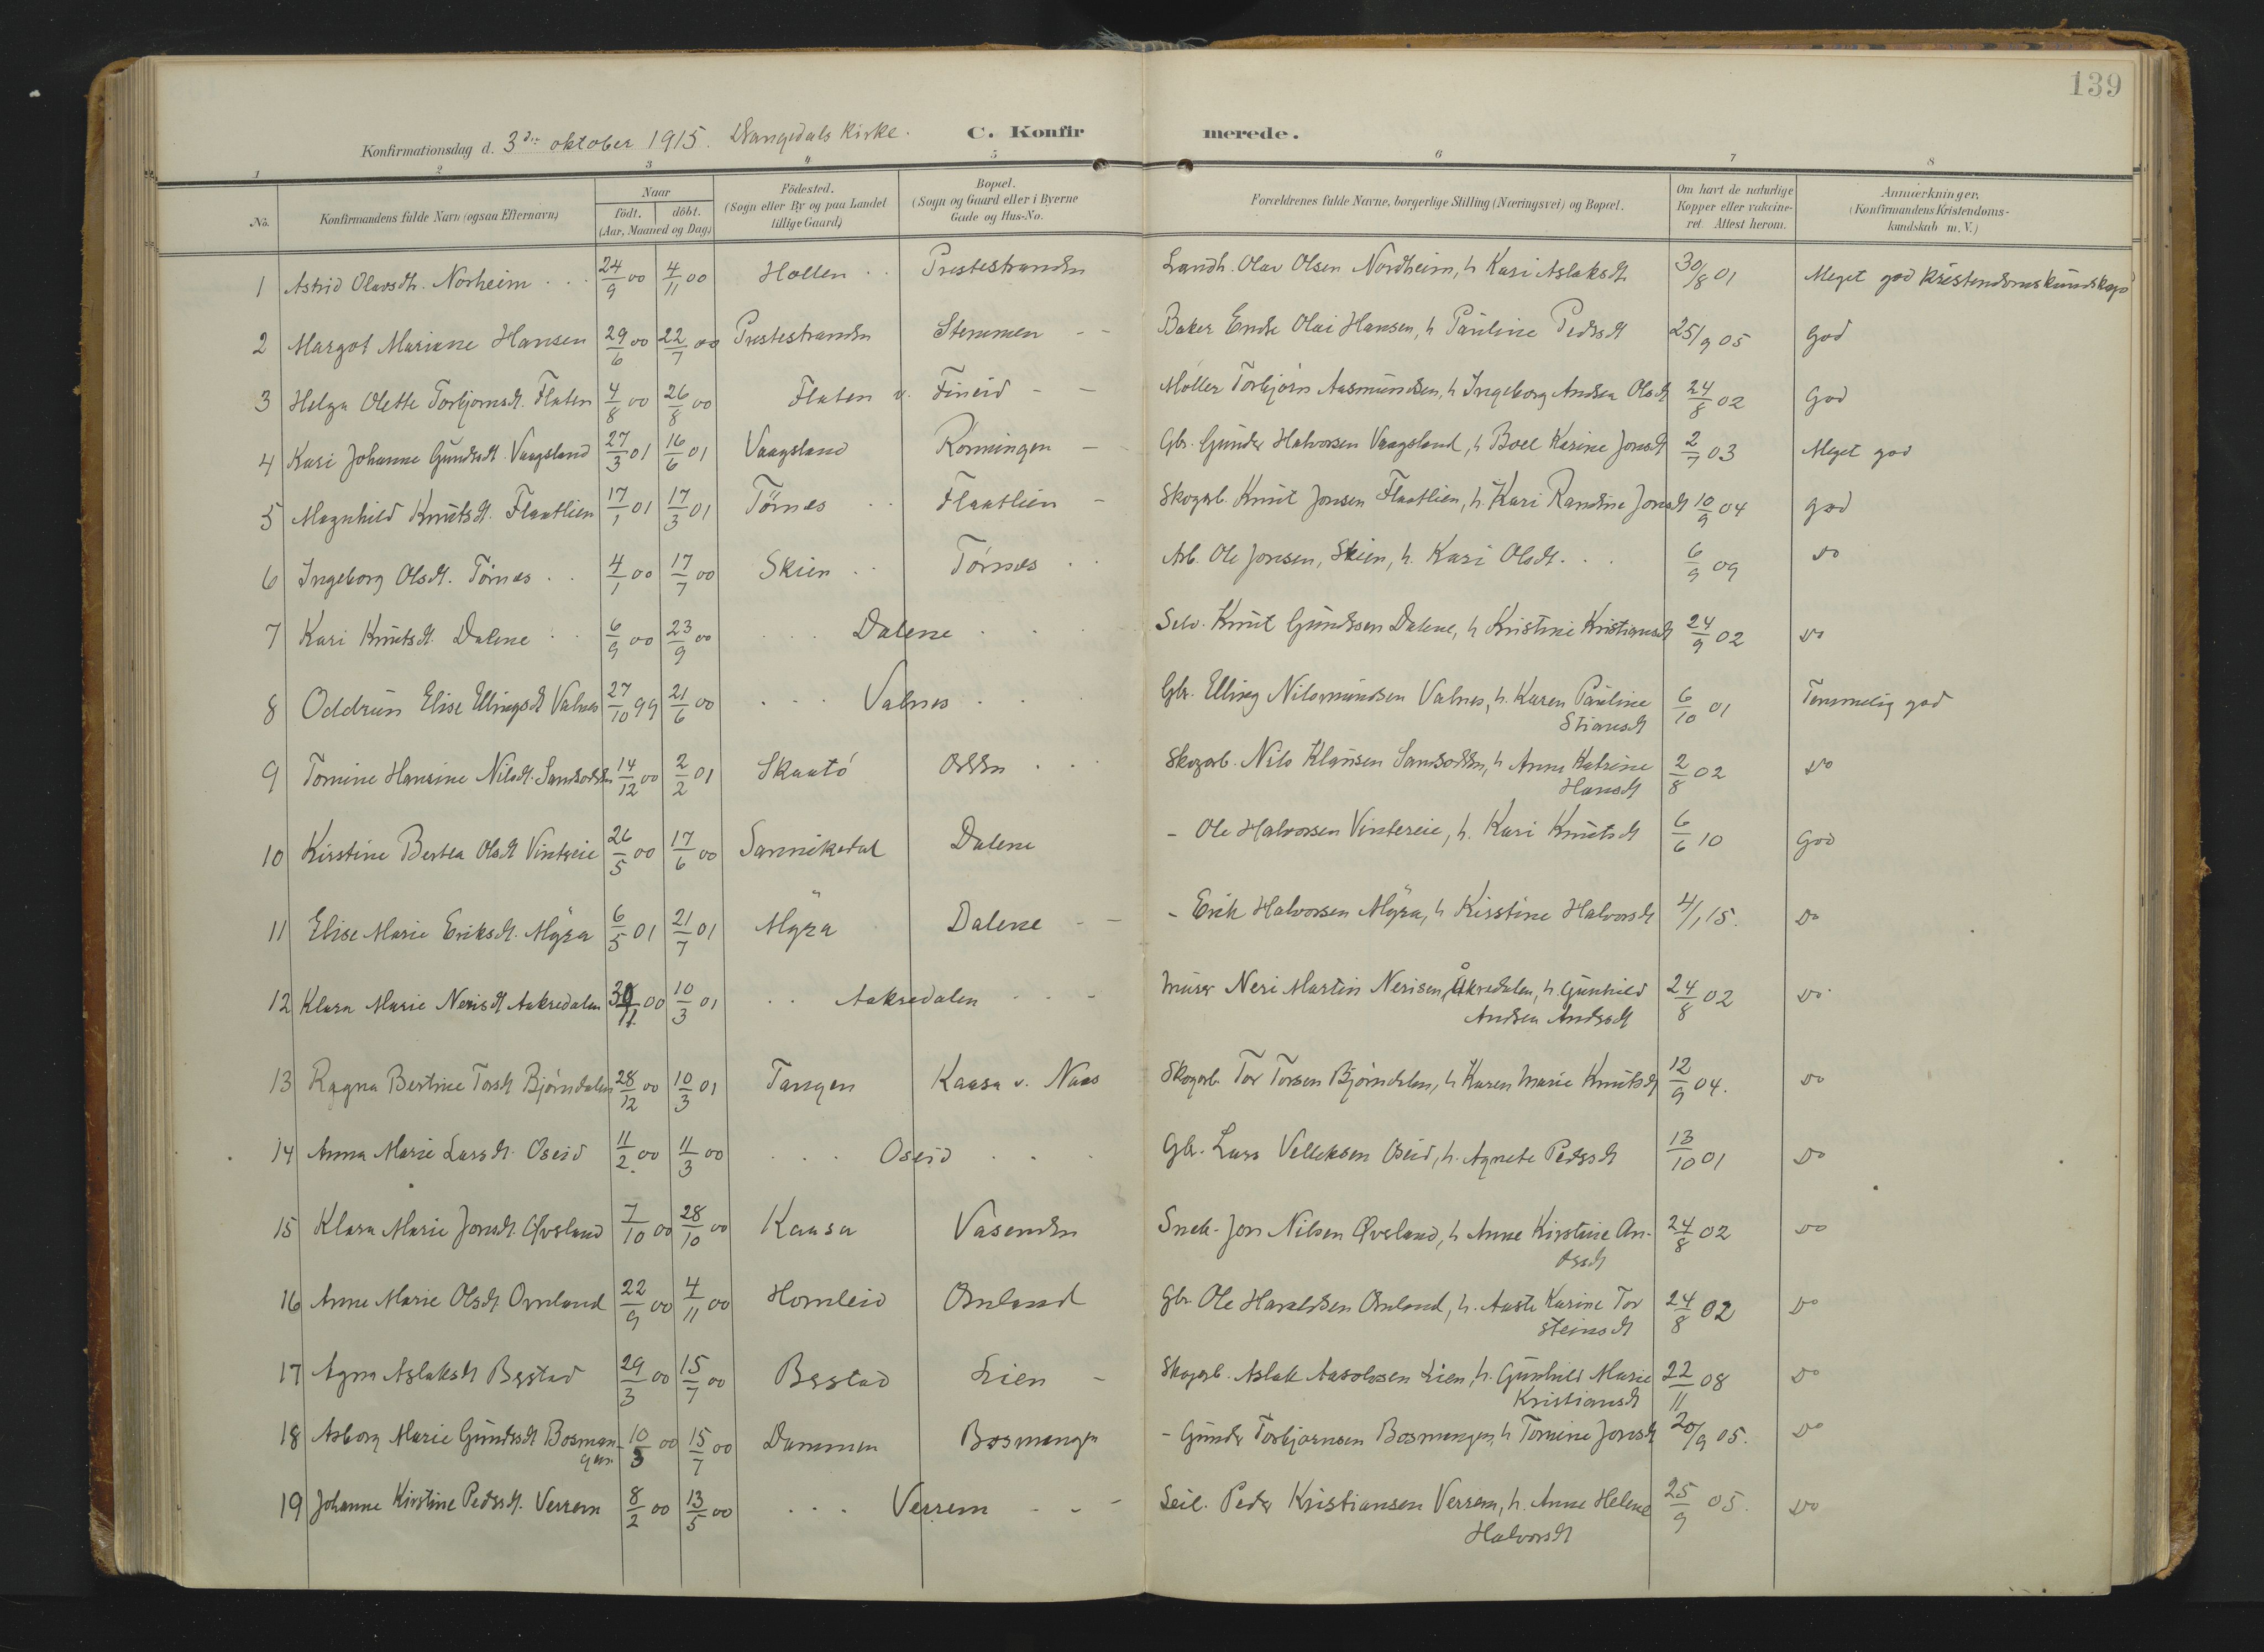 139
Konfirmationsdag d. 3die oktober 1915. Drangedals kirke. C. Konfirmerede.
1 2 3 4 5 6 7 8
No. Konfirmandens fulde Navn (ogsaa Efternavn) Naar födt. döbt. (Aar, Maaned og Dag) Födested. (Sogn eller By og paa Landet tillige Gaard) Bopæl. (Sogn og Gaard eller i Byerne Gade og Hus-No. Forældrenes fulde Navne, borgerlige Stilling (Næringsvei) og Bopæl. Om havt de naturlige Kopper eller vaccineret. Attest herom. Anmærkninger. (Konfirmandens Kristendomskundskab m. V.)
1 Astrid Olavsdt. Norheim 24/9 00 4/11 00 Hollen Prestestranden Landh. Olav Olsen Nordheim, h Kari Aslaksdt 30/8 01 Meget god kristendomskundskap
2 Margot Mariane Hansen 29/6 00 22/7 00 Prestestranden Stemmen Baker Endre Olai Hansen, h Pauline Pedsdt 25/9 05 God
3 Helga Olette Torbjornsdt. Flaten 4/8 00 26/8 00 Flaten v. Fineid Møller Torbjörn Aasmundsen, h Ingeborg Andrea Olsdt 24/8 02 God
4 Kari Johanne Gundsdt. Vaagsland 27/3 01 16/6 01 Vaagsland Rönningen Gbr. Gunder Halvorsen Vaagsland, h Boel Karine Jonsdt 2/7 03 Meget god
5 Magnhild Knutsdt. Flaatlien 17/1 01 17/3 01 Törnes Flaatlien Skogarb. Knut Jonsen Flaatlien, h. Kari Randine Jonsdt 10/9 04 god
6 Ingeborg Olsdt. Törnes 4/1 00 17/7 00 Skien Törnes Arb. Ole Jonsen, Skien, h. Kari Olsdt. 6/9 09 do
7 Kari Knutsdt. Dalene 6/9 00 23/9 00 Dalene Selv. Knut Gundersen Dalene, h Kristine Kristiansdt 24/9 02 do
8 Oddrun Elise Ellingsdt Valnes 27/10 99 21/6 00 Valnes Gbr. Elling Nilsmundsen Valnes, h. Karen Pauline Stiansdt 6/10 01 Temmelig god
9 Tomine Hansine Nilsdt. Sandodden 14/12 00 2/2 01 Skaatö Odden Skogarb. Nils Klausen Sandodden, h Anne Katrine Hansdt 2/8 02 do
10 Kirstine Bertea Olsdt Vintreie 26/5 00 17/6 00 Sannikedal Dalene - Ole Halvorsen Vintereie, h. Kari Knutsdt 6/6 10 God
11 Elise Marie Eriksdt. Myra 6/5 01 21/7 01 Myra Dalene - Erik Halvorsen Myra, h Kirstine Halvorsdt 4/1 15. Do
12 Klara Marie Nerisdt Aakredalen 30/11 00 10/3 01 Aakredalen Murer Neri Martin Nerisen Åkredalen, h. Gunhild Andrea Andsdt 24/8 02 do
13 Ragna Bertine Torsdt Bjørndalen 28/12 00 10/3 01 Tangen Kaasa v. Naas Skogarb. Tor Torsen Bjørndalen, h Karen Marie Knutsdt 12/9 04. do
14 Anna Marie Larsdt. Oseid 11/2 00 11/3 00 Oseid Gbr. Lars Velleksen Oseid, h. Agnete Pedsdt 13/10 01 do
15 Klara Marie Jonsdt. Øvsland 7/10 00 28/10 00 Kaasa Vasenden Snek. Jon Nilsen Øvsland, h Anne Kirstine An- dsdt 24/8 02 do
16 Anne Marie Olsdt Omland 22/9 00 4/11 00 Homleid Omland Gbr. Ole Haraldsen Omland, h. Aaste Karine Tor steinsdt 24/8 02 do
17 Agna Aslaksdt Bøstad 29/3 00 15/7 00 Bøstad Lien Skogarb. Aslak Aasolvsen Lien, h. Gunhild Marie Kristiansdt 22/11 08 do
18 Asborg Marie Gundsdt Bosmangen 10/3 00 15/7 00 Dammen Bosmangen - Gunder Torbjørnsen Bosmangen, h Tomine Jonsdt 20/9 05. do
19 Johanne Kirstine Pedsdt. Versem 8/2 00 13/5 00 Versem Seil. Peder Kristiansen Versem, h. Anne Helene Halvorsdt 25/9 05. do